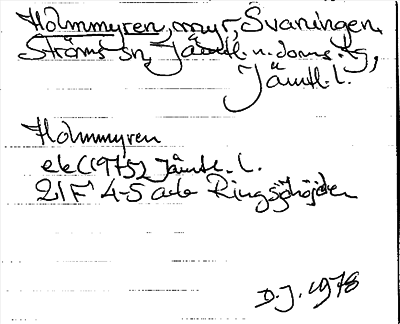 Holmmyren, myr, Svaningen,
Ströms sn, Jämtl. n. doms.g,
Jämtl. l.
Holmmyren
ek (1975) Jämtl. l.
21F 4-5 ab Ringsjöhöjden
D.J. 1978